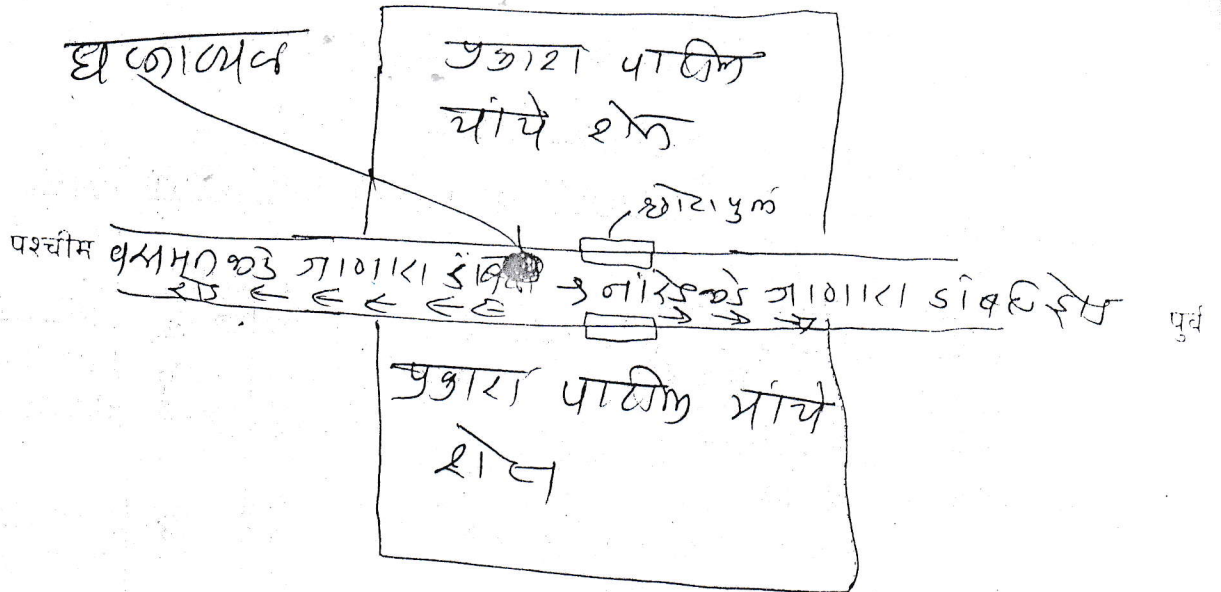 घटनास्थळ
प्रकाश पाटील
यांचे शेत
छोटा पुल
पश्चीम वसमतकडे जाणारा डांबरी → नांदेडकडे जाणारा डांबरी रोड पुर्व
रोड ← ← ← ← ← → → →
प्रकाश पाटील यांचे
शेत